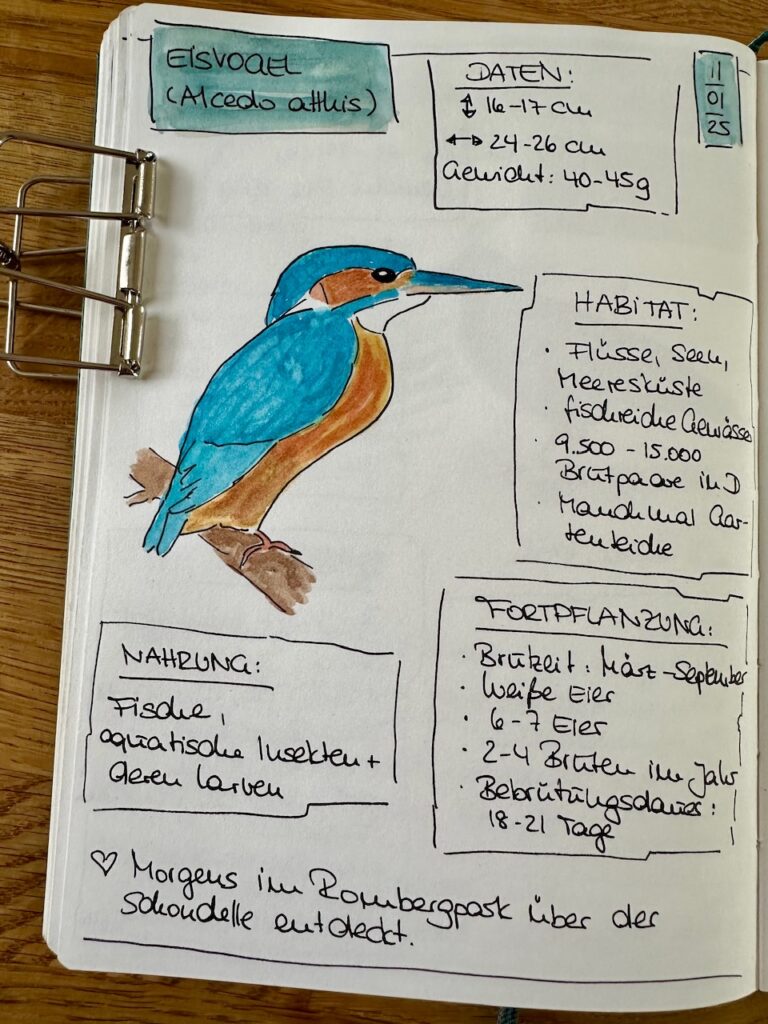 EISVOGEL
(Alcedo atthis)
DATEN:
↕ 16-17 cm
↔ 24-26 cm
Gewicht: 40-45g
11
01
25
HABITAT:
· Flüsse, Seen,
Meeresküste
· fischreiche Gewässer
· 9.500 - 15.000
Brutpaare in D
· Manchmal Gar-
tenteiche
NAHRUNG:
Fische,
aquatische Insekten +
deren Larven
FORTPFLANZUNG:
· Brutzeit: März-September
· Weiße Eier
· 6-7 Eier
· 2-4 Bruten im Jahr
· Bebrütungsdauer:
18-21 Tage
♡ Morgens im Rombergpark über der
Schondelle entdeckt.